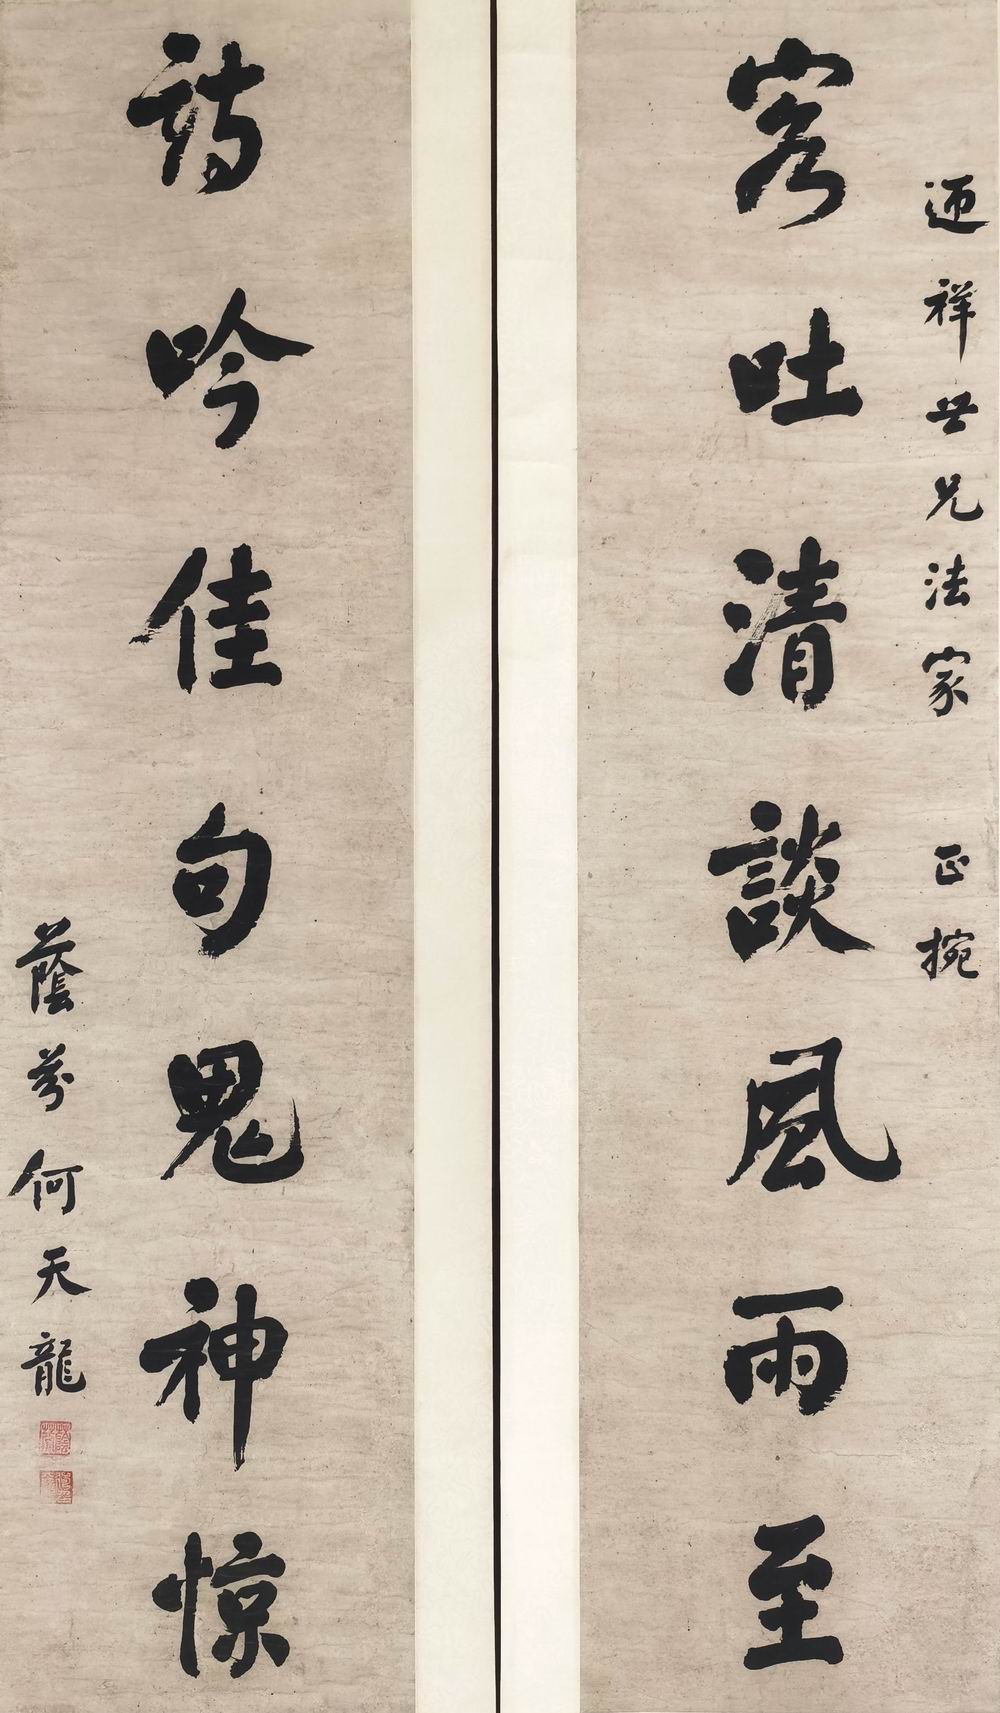 迊祥世兄法家 正捥
客吐清談風雨至
詩吟佳句鬼神惊
蔭芬何天龍